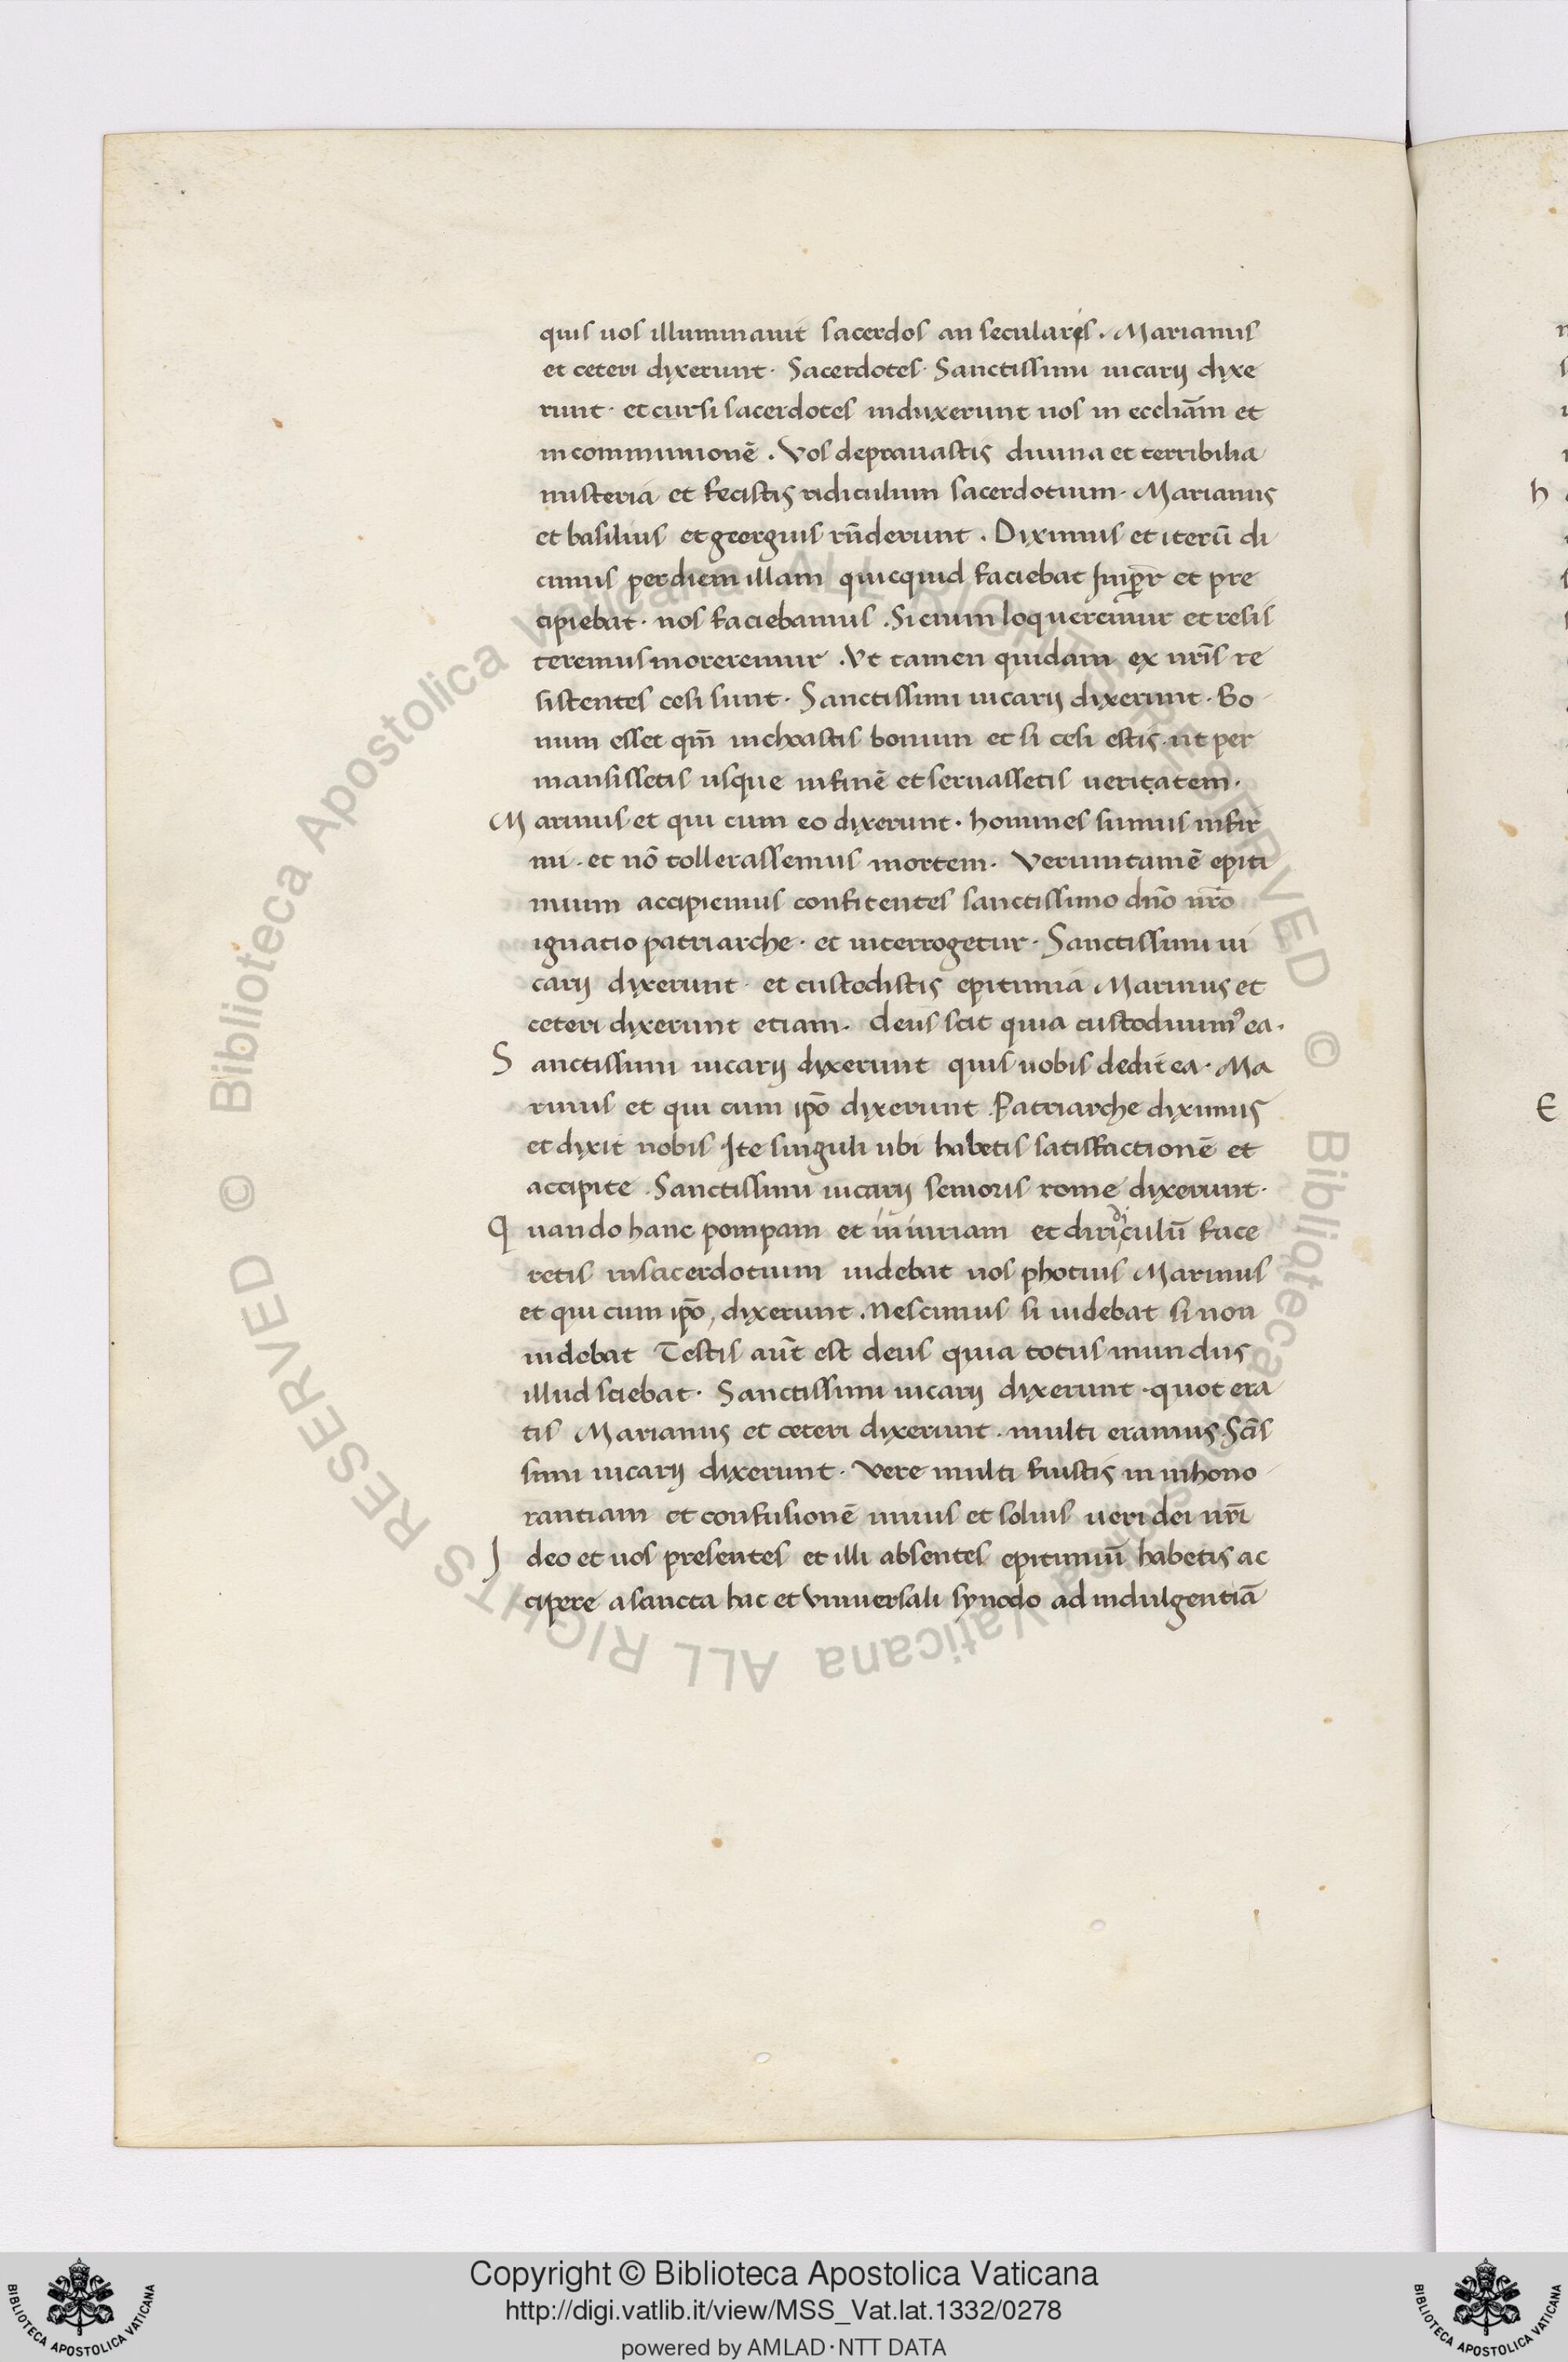 quis uos illuminauit sacerdos an secularis. Marianus
et ceteri dixerunt. Sacerdotes. Sanctissimi uicarij dixe
runt. et cur si sacerdotes induxerunt uos in eccliam̄ et
in communionē. Vos deprauastis diuina et terribilia
misteria et fecistis ridiculum sacerdotium. Marianus
et basilius et georgius rn̄derunt. Diximus et iterū di
cimus per diem illam quicquid faciebat Imp̄r et pre
cipiebat. nos faciebamus. Si enim loqueremur et resis
teremus moreremur. Vt tamen quidam ex nr̄is re
sistentes cesi sunt. Sanctissimi uicarij dixerunt. Bo
num esset qm̄ inchoastis bonum et si cesi estis ut per
mansissetis usque in finē et seruassetis ueritatem.
Marinus et qui cum eo dixerunt. homines sumus infir
mi. et nō tollerassemus mortem. Veruntamē epiti
mium accipiemus confitentes sanctissimo dn̄o nr̄o
ignatio patriarche. et interrogetur. Sanctissimi ui
carij dixerunt. et custodistis epitimia Marinus et
ceteri dixerunt etiam. deus scit quia custodiuim⁹ ea.
Sanctissimi uicarij dixerunt quis uobis dedit ea. Ma
rinus et qui cum ip̄o dixerunt. Patriarche diximus
et dixit nobis Ite singuli ubi habetis satisfactionē et
accipite. Sanctissimi uicarij senioris rome dixerunt.
Quando hanc pompam et iniuriam et diridiculū face
retis in sacerdotium uidebat uos photius Marinus
et qui cum ip̄o, dixerunt. Nescimus si uidebat si non
uidebat Testis aūt est deus quia totus mundus
illud sciebat. Sanctissimi uicarij dixerunt. quot era
tis Marianus et ceteri dixerunt. multi eramus Sc̄is
simi uicarij dixerunt. Vere multi fuistis in inhono
rantiam et confusionē unius et solius ueri dei nr̄i
Ideo et uos presentes et illi absentes epitimiū habetis ac
cipere a sancta hac et vniuersali synodo ad indulgentiā
h
E
© Biblioteca Apostolica Vaticana ALL RIGHTS RESERVED © Biblioteca Apostolica Vaticana ALL RIGHTS RESERVED
Copyright © Biblioteca Apostolica Vaticana
http://digi.vatlib.it/view/MSS_Vat.lat.1332/0278
powered by AMLAD·NTT DATA
BIBLIOTECA APOSTOLICA VATICANA
BIBLIOTECA APOSTOLICA VATICANA